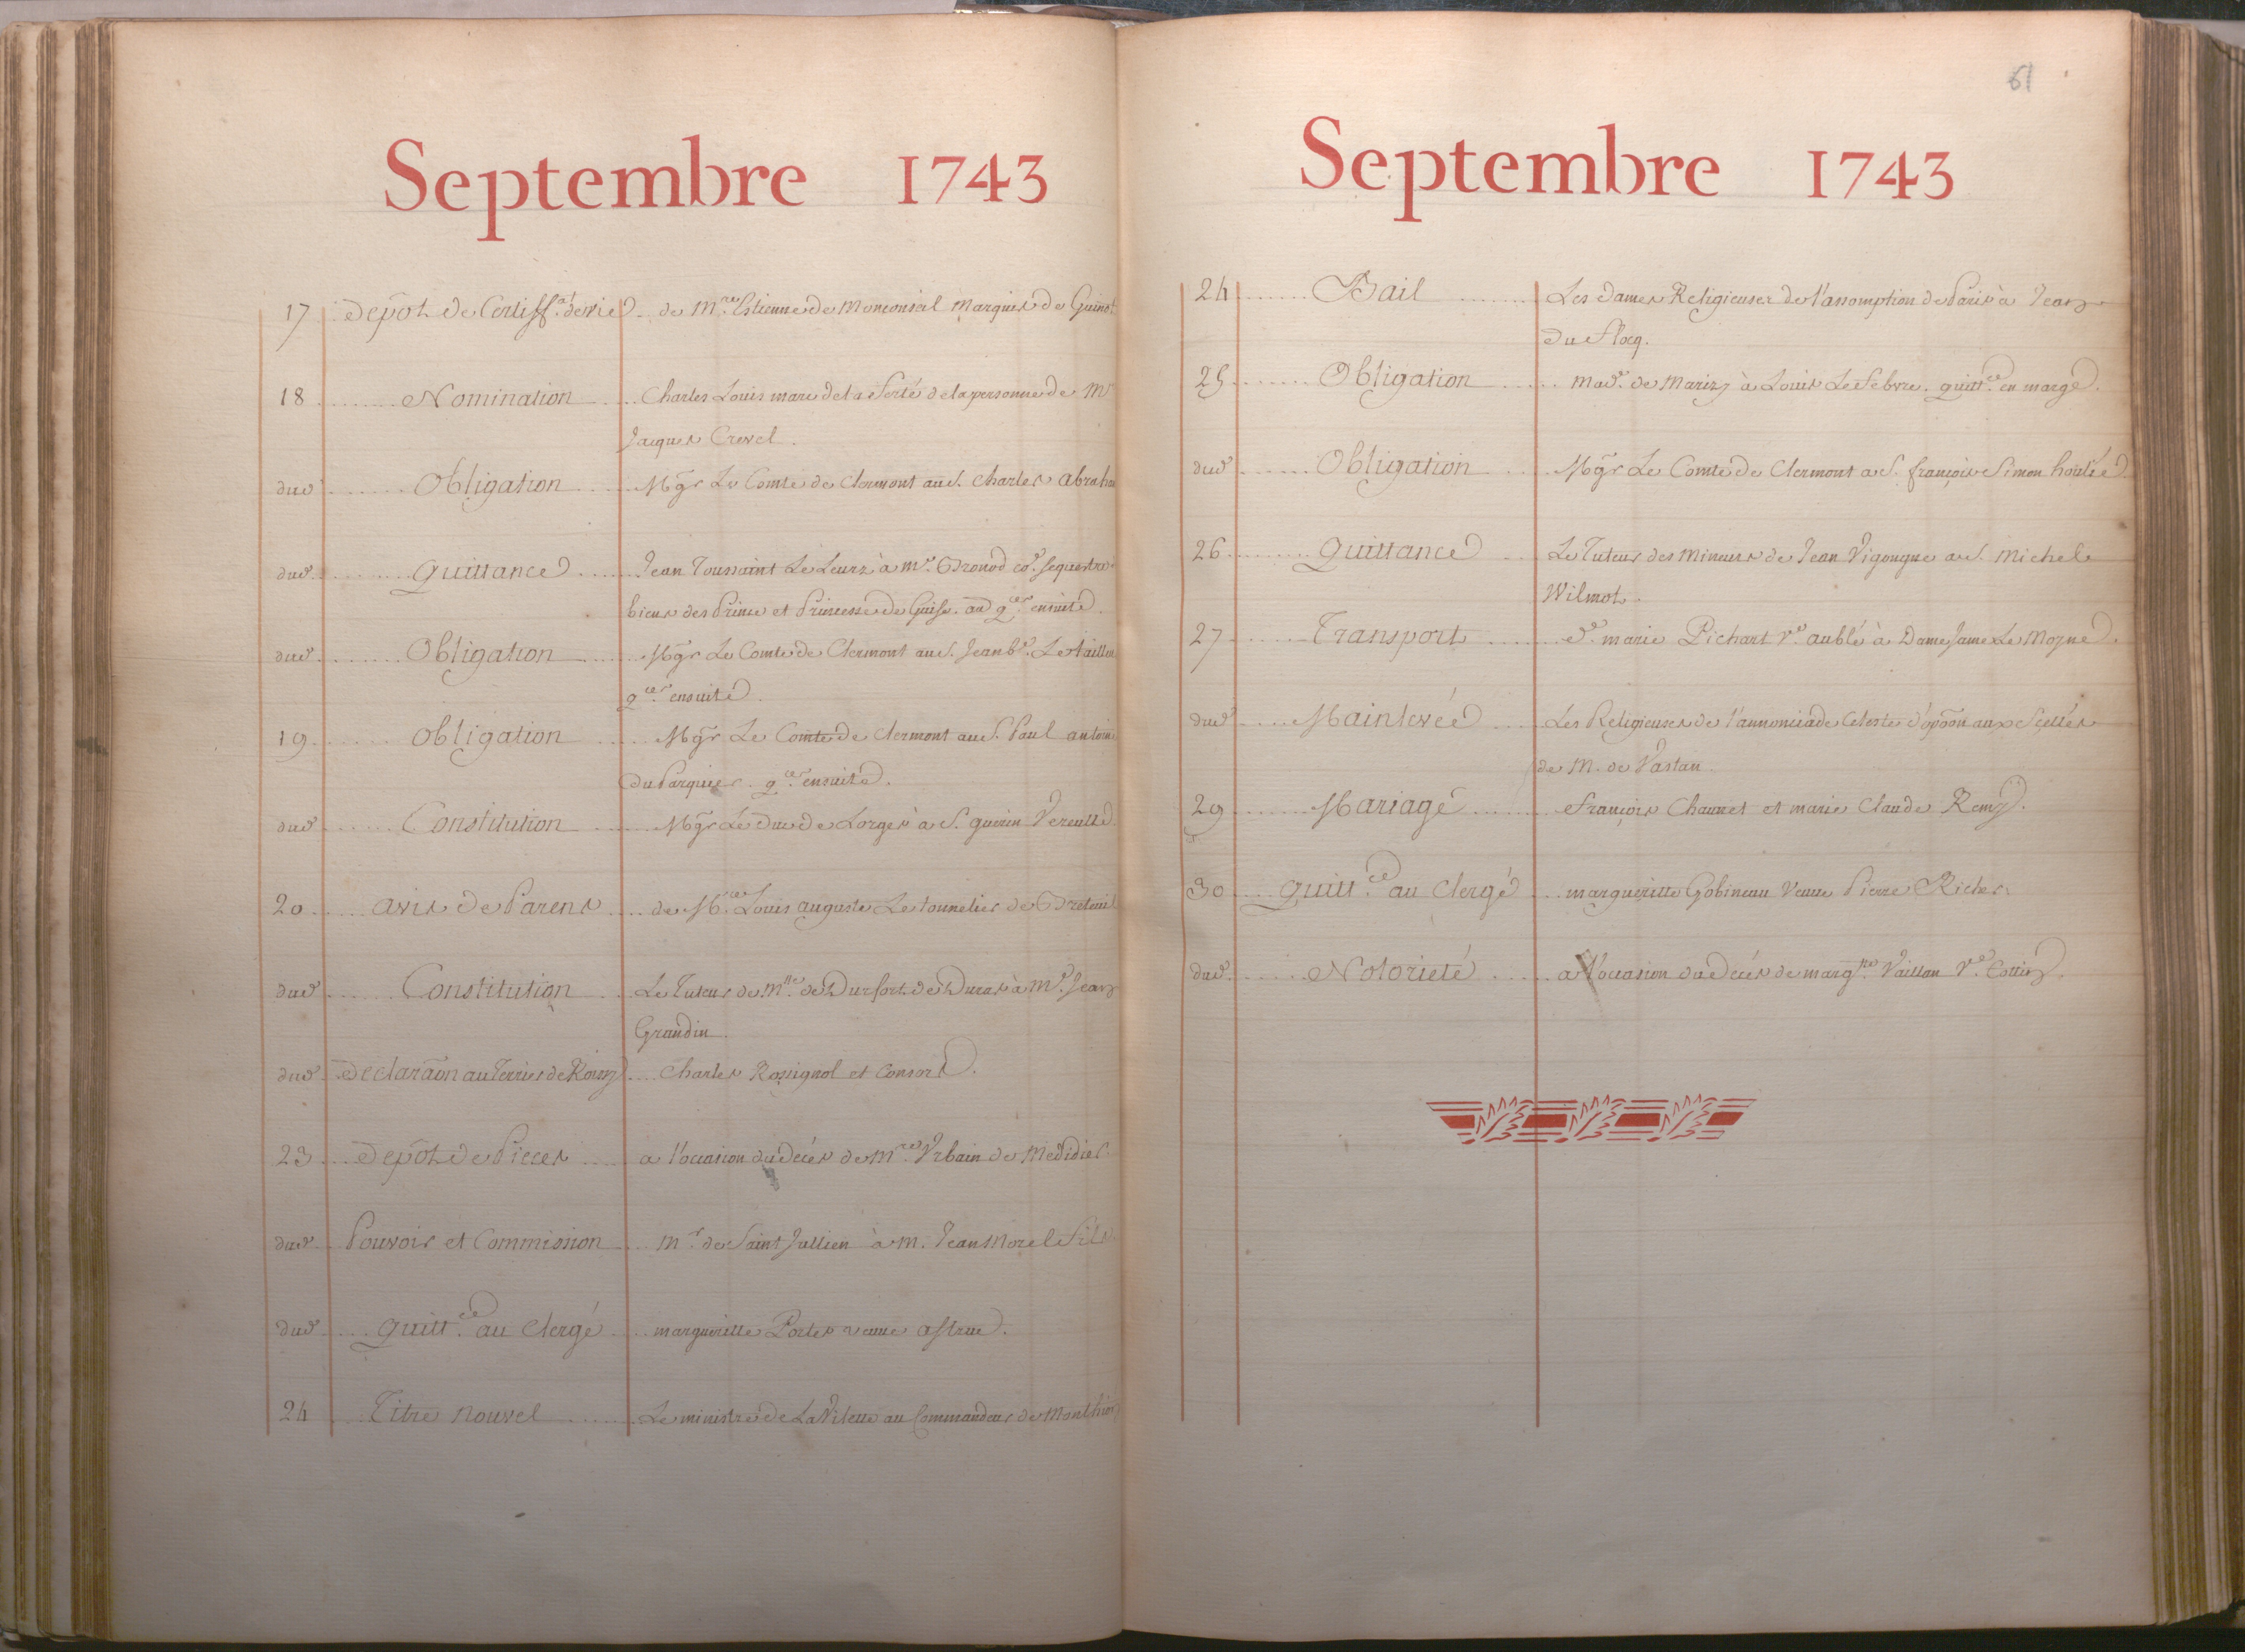 Septembre 1743
17 Depôt de Certiff.at de vie de M.re Estienne de Monconseil Marquis de Guinot
18 Nomination Charles Louis marc de la Ferté de la personne de Mr
Jacques Crevel.
dud. Obligation Mgr Le Comte de Clermont au S. Charles Abraham
dud. Quittance Jean Toussaint Le Leurz à Mr. Bronod co. sequestre
biens des Prince et Princesse de Guise. q.ces ensuite.
dud. Obligation Mgr Le Comte de Clermont au S. Jean b.te Le tailleur
q.ces ensuite.
19 Obligation Mgr Le Comte de Clermont au S. Paul antoine
du Parquier. q.ces ensuite.
dud. Constitution Mgr Le Duc de Lorges a S. guerin Vereulle
20 avis de Parens de M.re Louis auguste Le tonnelier de Breteuil
dud. Constitution Le Tuteur de M.lle de Durfort de Duras à Mr. Jean
Grandin.
dud. Declaraõn au Terrier de Roissy Charles Rossignol et Consors.
23 depôt de Pieces a l'occasion du deces de M.re Urbain de Medidier
dud. Pouvoir et Commission Mr. de Saint Jullien à M. Jean Morel Fils
dud. Quitt.ce au Clergé margueritte Portes veuve astruc.
24 Titre nouvel Le ministre de La Vilette au Commandeur de Monthiers
61
Septembre 1743
24 Bail Les Dames Religieuses de l'assomption de Paris à Jean
du Flocq.
25 Obligation Mad.e de Marizy à Louis Le Febvre. quitt.ce en marge.
dud. Obligation Mgr Le Comte de Clermont a S. françois Simon houlié
26 Quittance Le Tuteur des Mineurs de Jean Vigougne au S. Michel
Wilmot.
27 Transport D.e marie Pichart V.e aublé à Dame Jame Le Moyne.
dud. Mainlevée Les Religieuses de l'annonciade Celeste d'opõon aux Scellés
de M. de Vastan.
29 Mariage François Chaunet et marie Claude Remy.
30 Quitt.ce au Clergé margueritte Gobineau Veuve Pierre Richer.
dud. Notorieté a l'occasion du Deces de marg.tte Vaillan V.e Cottin.